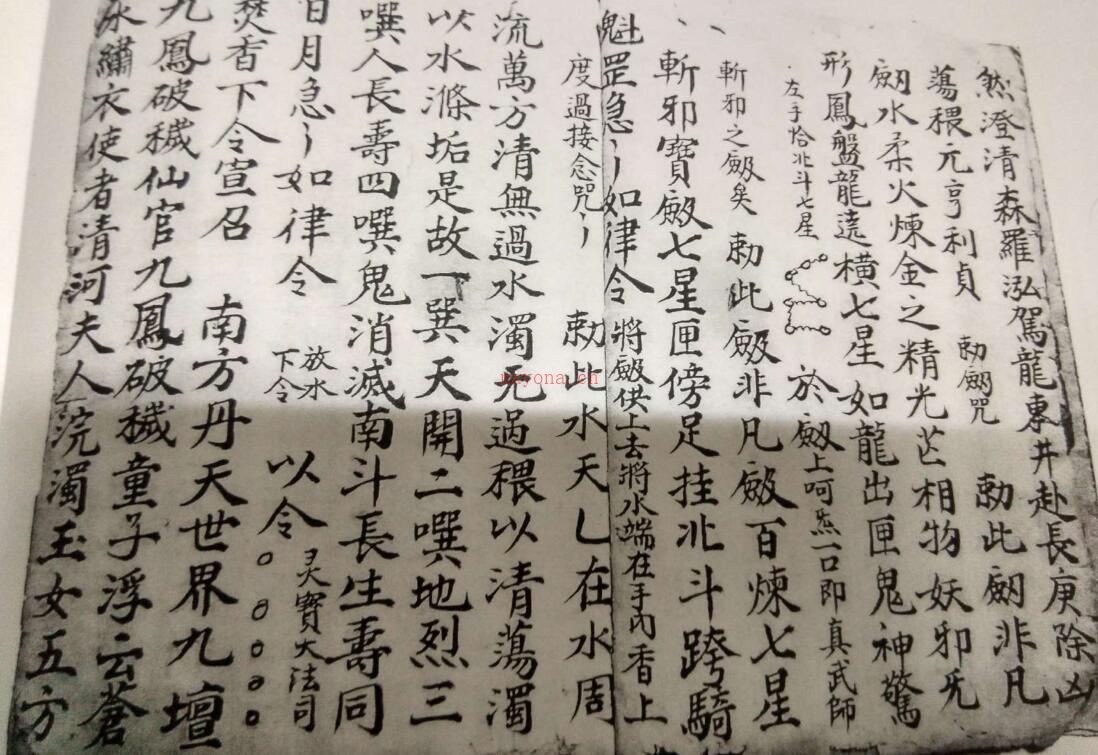 然澄清森羅泓駕龍東井赴長庚除凶
蕩穢元亨利貞 勅劒咒 勅此劒非凡
劒水柔火煉金之精光芒相物妖邪旡
形鳳盤龍遶橫七星如龍出匣鬼神驚
左手恰北斗七星 於劒上呵炁一口即真武師
斬邪之劒矣 勅此劒非凡劒百煉七星
斬邪寶劒七星匣傍足挂北斗跨騎
魁罡急〻如律令 將劒供上去將水端在手內香上
度過接念咒〻 勅此水天乙在水周
流萬方清無過水濁旡過穢以清蕩濁
以水滌垢是故一噀天開二噀地烈三
噀人長壽四噀鬼消滅南斗長生壽同
日月急〻如律令 放水下令 以令 灵寶大法司
焚香下令宣召 南方丹天世界九壇
九鳳破穢仙官九鳳破穢童子浮云蒼
冰繡衣使者清河夫人浣濁玉女五方
nayona.cn